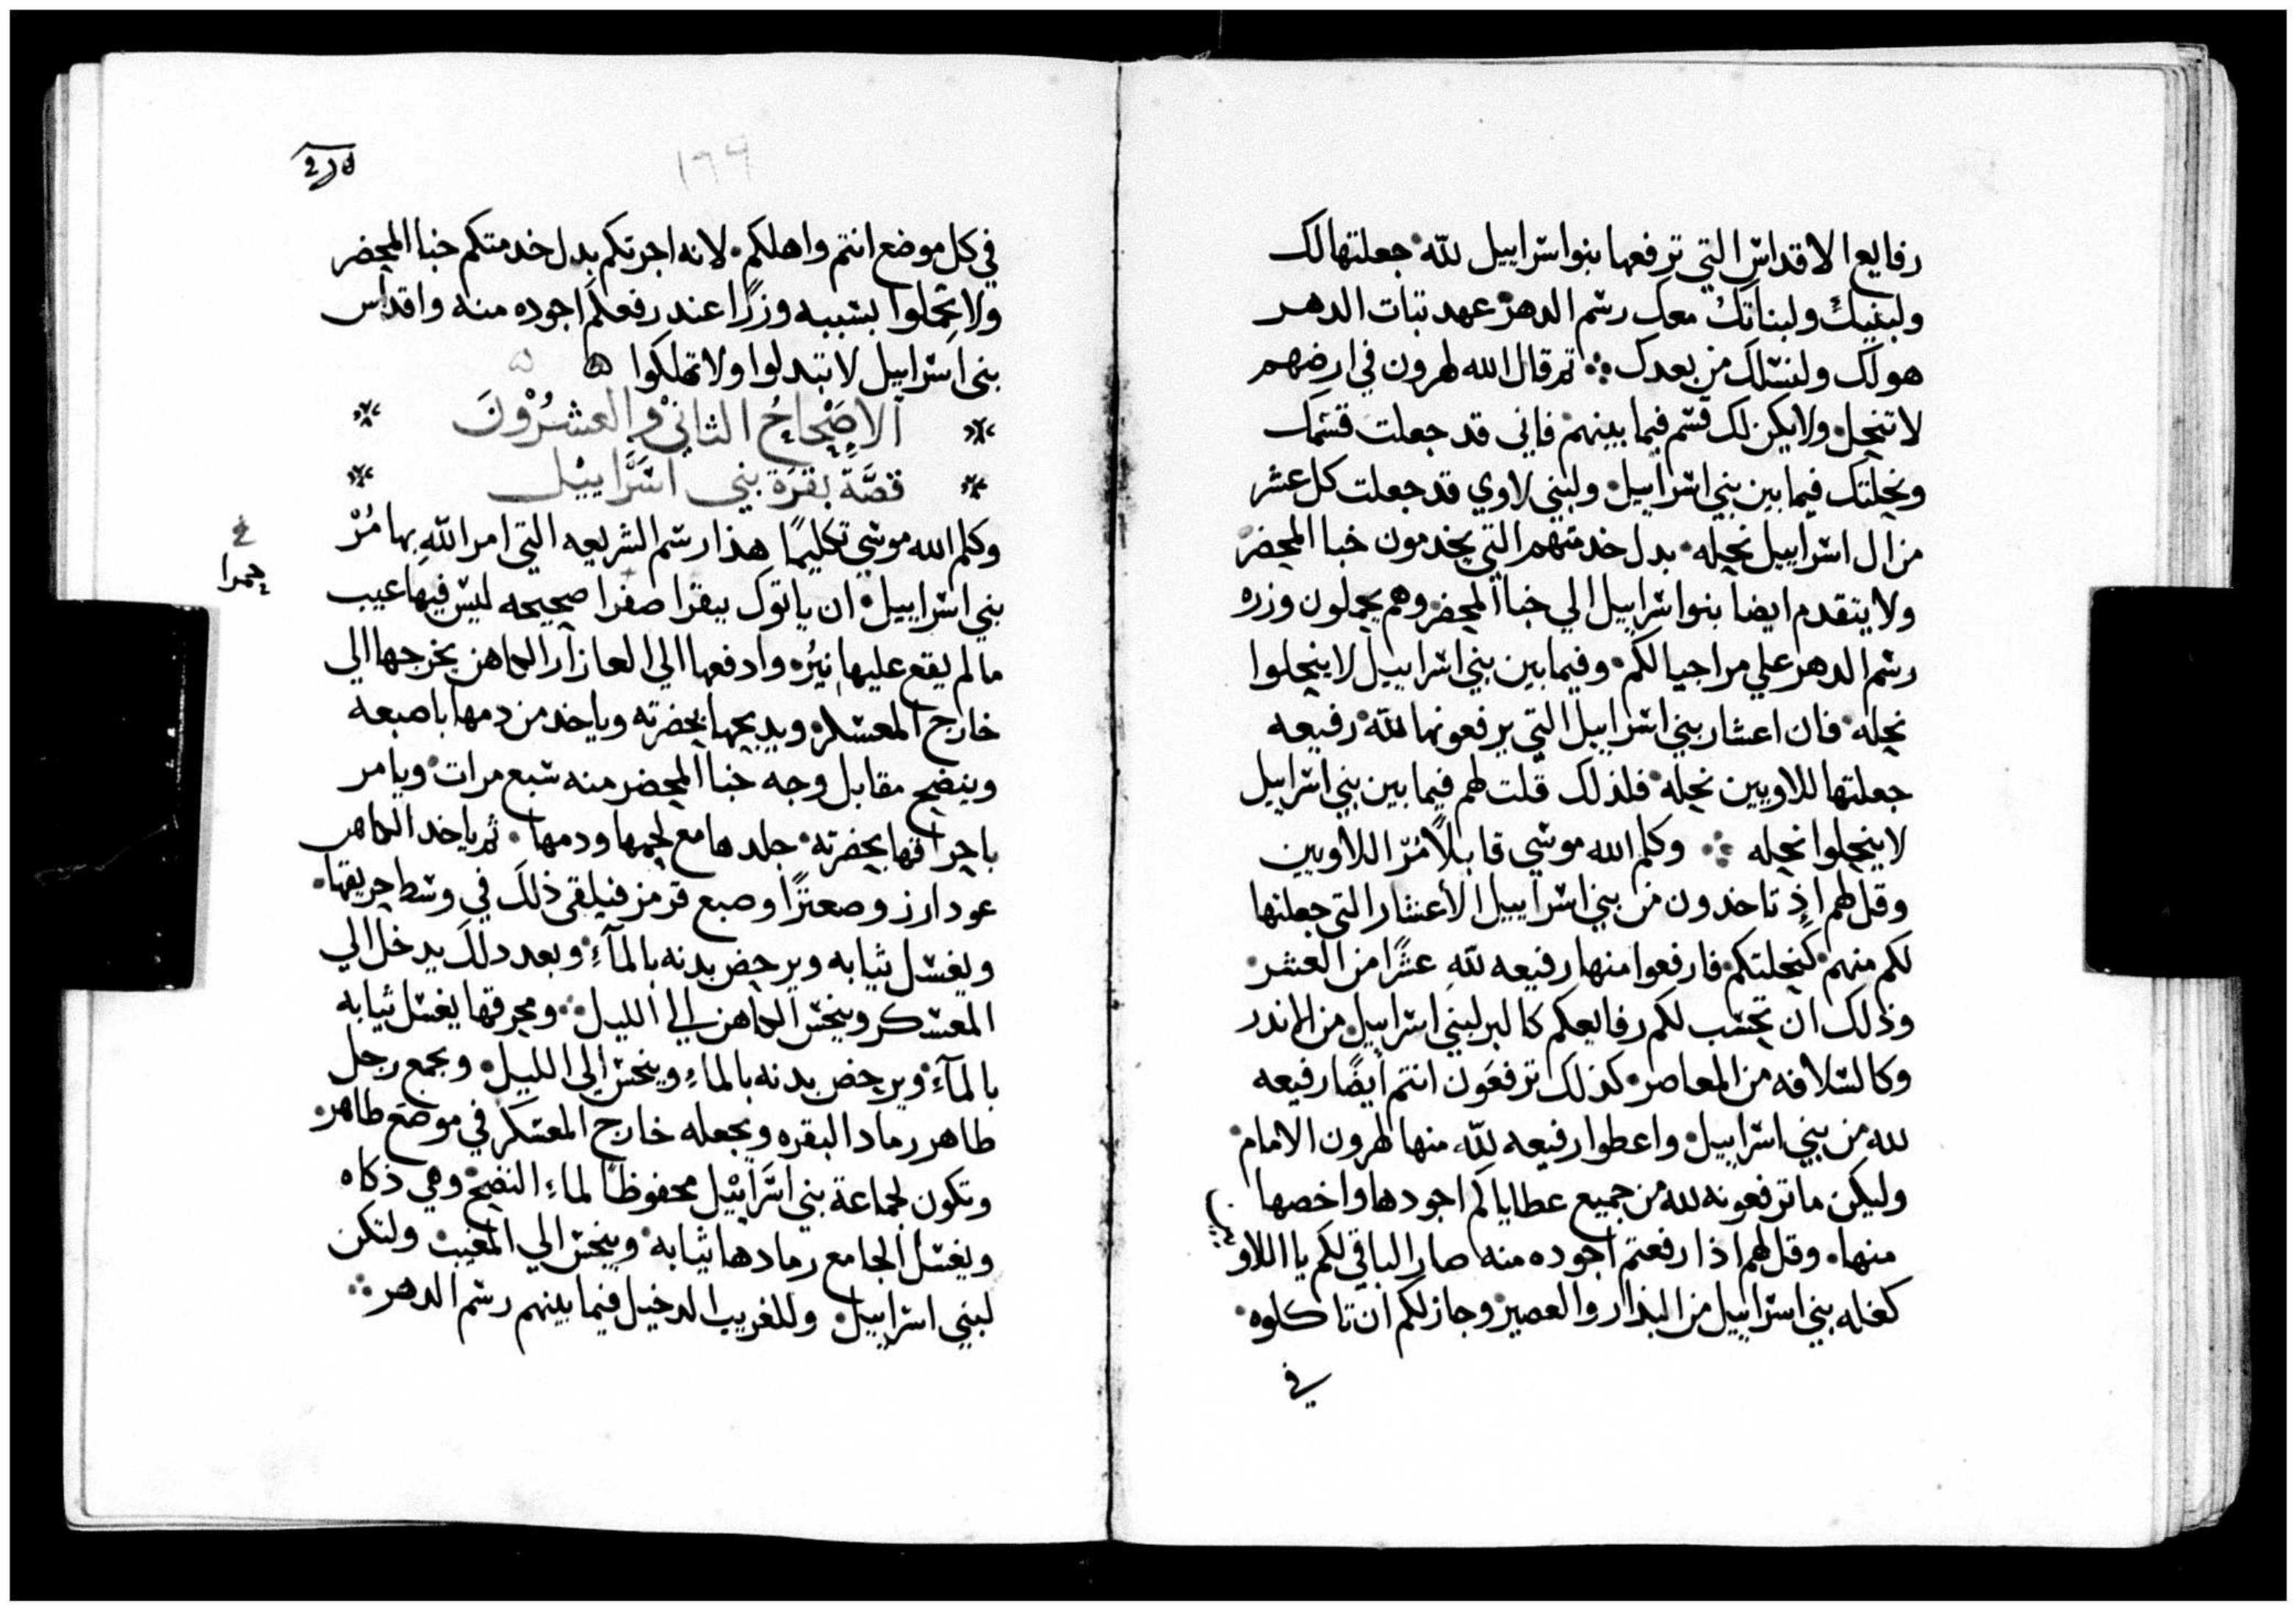 رفايع الاقداس التي ترفعها بنوا اسراييل لله جعلتها لك
ولبنيك ولبناتك معك رسم الدهر عهد تبات الدهر
هو لك ولنسلك من بعدك ثم قال الله لهرون في ارضهم
لا تنحل ولا يكن لك قسم فيما بينهم فاني قد جعلت قسمك
ونحلتك فيما بين بني اسراييل ولبني لاوي قد جعلت كل عشر
من ال اسراييل نحله بدل خدمتهم التي يخدمون خبا المحضر
ولا يتقدم ايضا بنوا اسراييل الي خبا المحضر وهم يحملون وزره
رسم الدهر علي مر اجيالكم وفيما بين بني اسراييل لا ينحلوا
نحله فان اعشار بني اسراييل التي يرفعونها لله رفيعه
جعلتها للاويين نحله فلذلك قلت لهم فيما بين بني اسراييل
لا ينحلوا نحله وكلم الله موسي قايلاً مُرّ اللاويين
وقل لهم اذ تاخدون من بني اسراييل الأعشار التي جعلتها
لكم منهم كنحلتكم فارفعوا منها رفيعه لله عشرًا من العشر
وذلك ان تحسب لكم رفايعكم كالبر لبني اسراييل من الاندر
وكالسلافه من المعاصر كذلك ترفعون انتم أيضًا رفيعه
لله من بني اسراييل واعطوا رفيعه لله منها لهرون الامام
وليكن ما ترفعونه لله من جميع عطاياكم اجودها واخصها
منها وقل لهم اذا رفعتم اجوده منه صار الباقي لكم يا اللاو
كغله بني اسراييل من البدار والعصير وجاز لكم ان تاكلوه
في
١٩٩
في كل موضع انتم واهلكم لانه اجرتكم بدل خدمتكم خبا المحضر
ولا تحملوا بسببه وزرًا عند رفعكم اجوده منه واقداس
بني اسراييل لا تبدلوا ولا تهلكوا
آلاصْحاحُ الثاني والعشرُوْنَ
قصَّة بقرَة بني اسْرَاييْل
وكلم الله موسي تكليمًا هذا رسم الشريعه التي امر الله بها مُرْ
حمرا
بني اسراييل ان ياتوك ببقرا صفرا صحيحه ليس فيها عيب
ما لم يقع عليها نيرُه وادفعها الي العازار الكاهن يخرجها الي
خارج المعسكر ويدبحها بحضرته وياخد من دمها باصبعه
وينضح مقابل وجه خبا المحضر منه سبع مرات ويامر
باحراقها بحضرته جلدها مع لحمها ودمها ثم ياخد الكاهن
عود ارز وصعترًا وصبع قرمز فيلقي ذلك في وسط حريقها
ويغسل ثيابه ويرحض بدنه بالمآء وبعد دلك يدخل الي
المعسكر وينجس الكاهن الي الليل ومحرقها يغسل ثيابه
بالمآء ويرحض بدنه بالماء وينجس الي الليل ويجمع رجل
طاهر رماد البقره ويجعله خارج المعسكر في موضع طاهر
وتكون لجماعة بني اسرَاييْل محفوظًا لماء النضح وهي ذكاه
ويغسل الجامع رمادها ثيابه وينجس الي المغيب ولتكن
لبني اسراييل وللغريب الدخيل فيما بينهم رسم الدهر